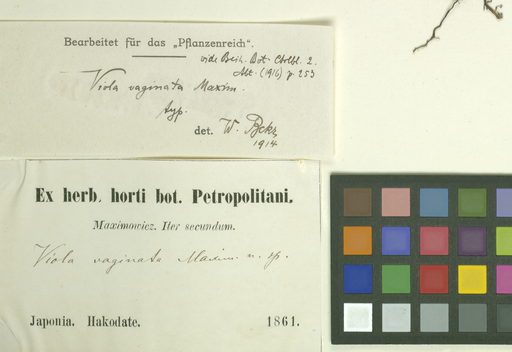 Bearbeitet für das „Pflanzenreich“.
vide Beih. Bot. Ctrlbl. 2.
Abt. (1916) p. 253
Viola vaginata Maxim.
typ.
det. W. Bckr
1914
Ex herb. horti bot. Petropolitani.
Maximowicz. Iter secundum.
Viola vaginata Maxim. n. sp.
Japonia. Hakodate. 1861.